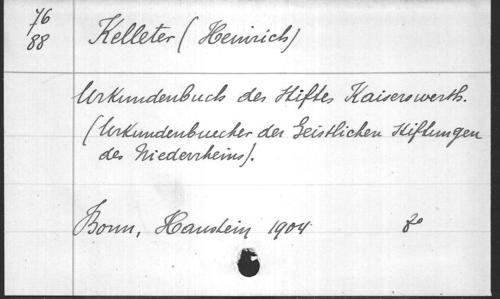 76
88
Kelleter (Heinrich)
Urkundenbuch des Stiftes Kaiserswerth.
(Urkundenbuecher der Geistlichen Stiftungen
des Niederrheins).
Bonn, Hanstein 1904 8°